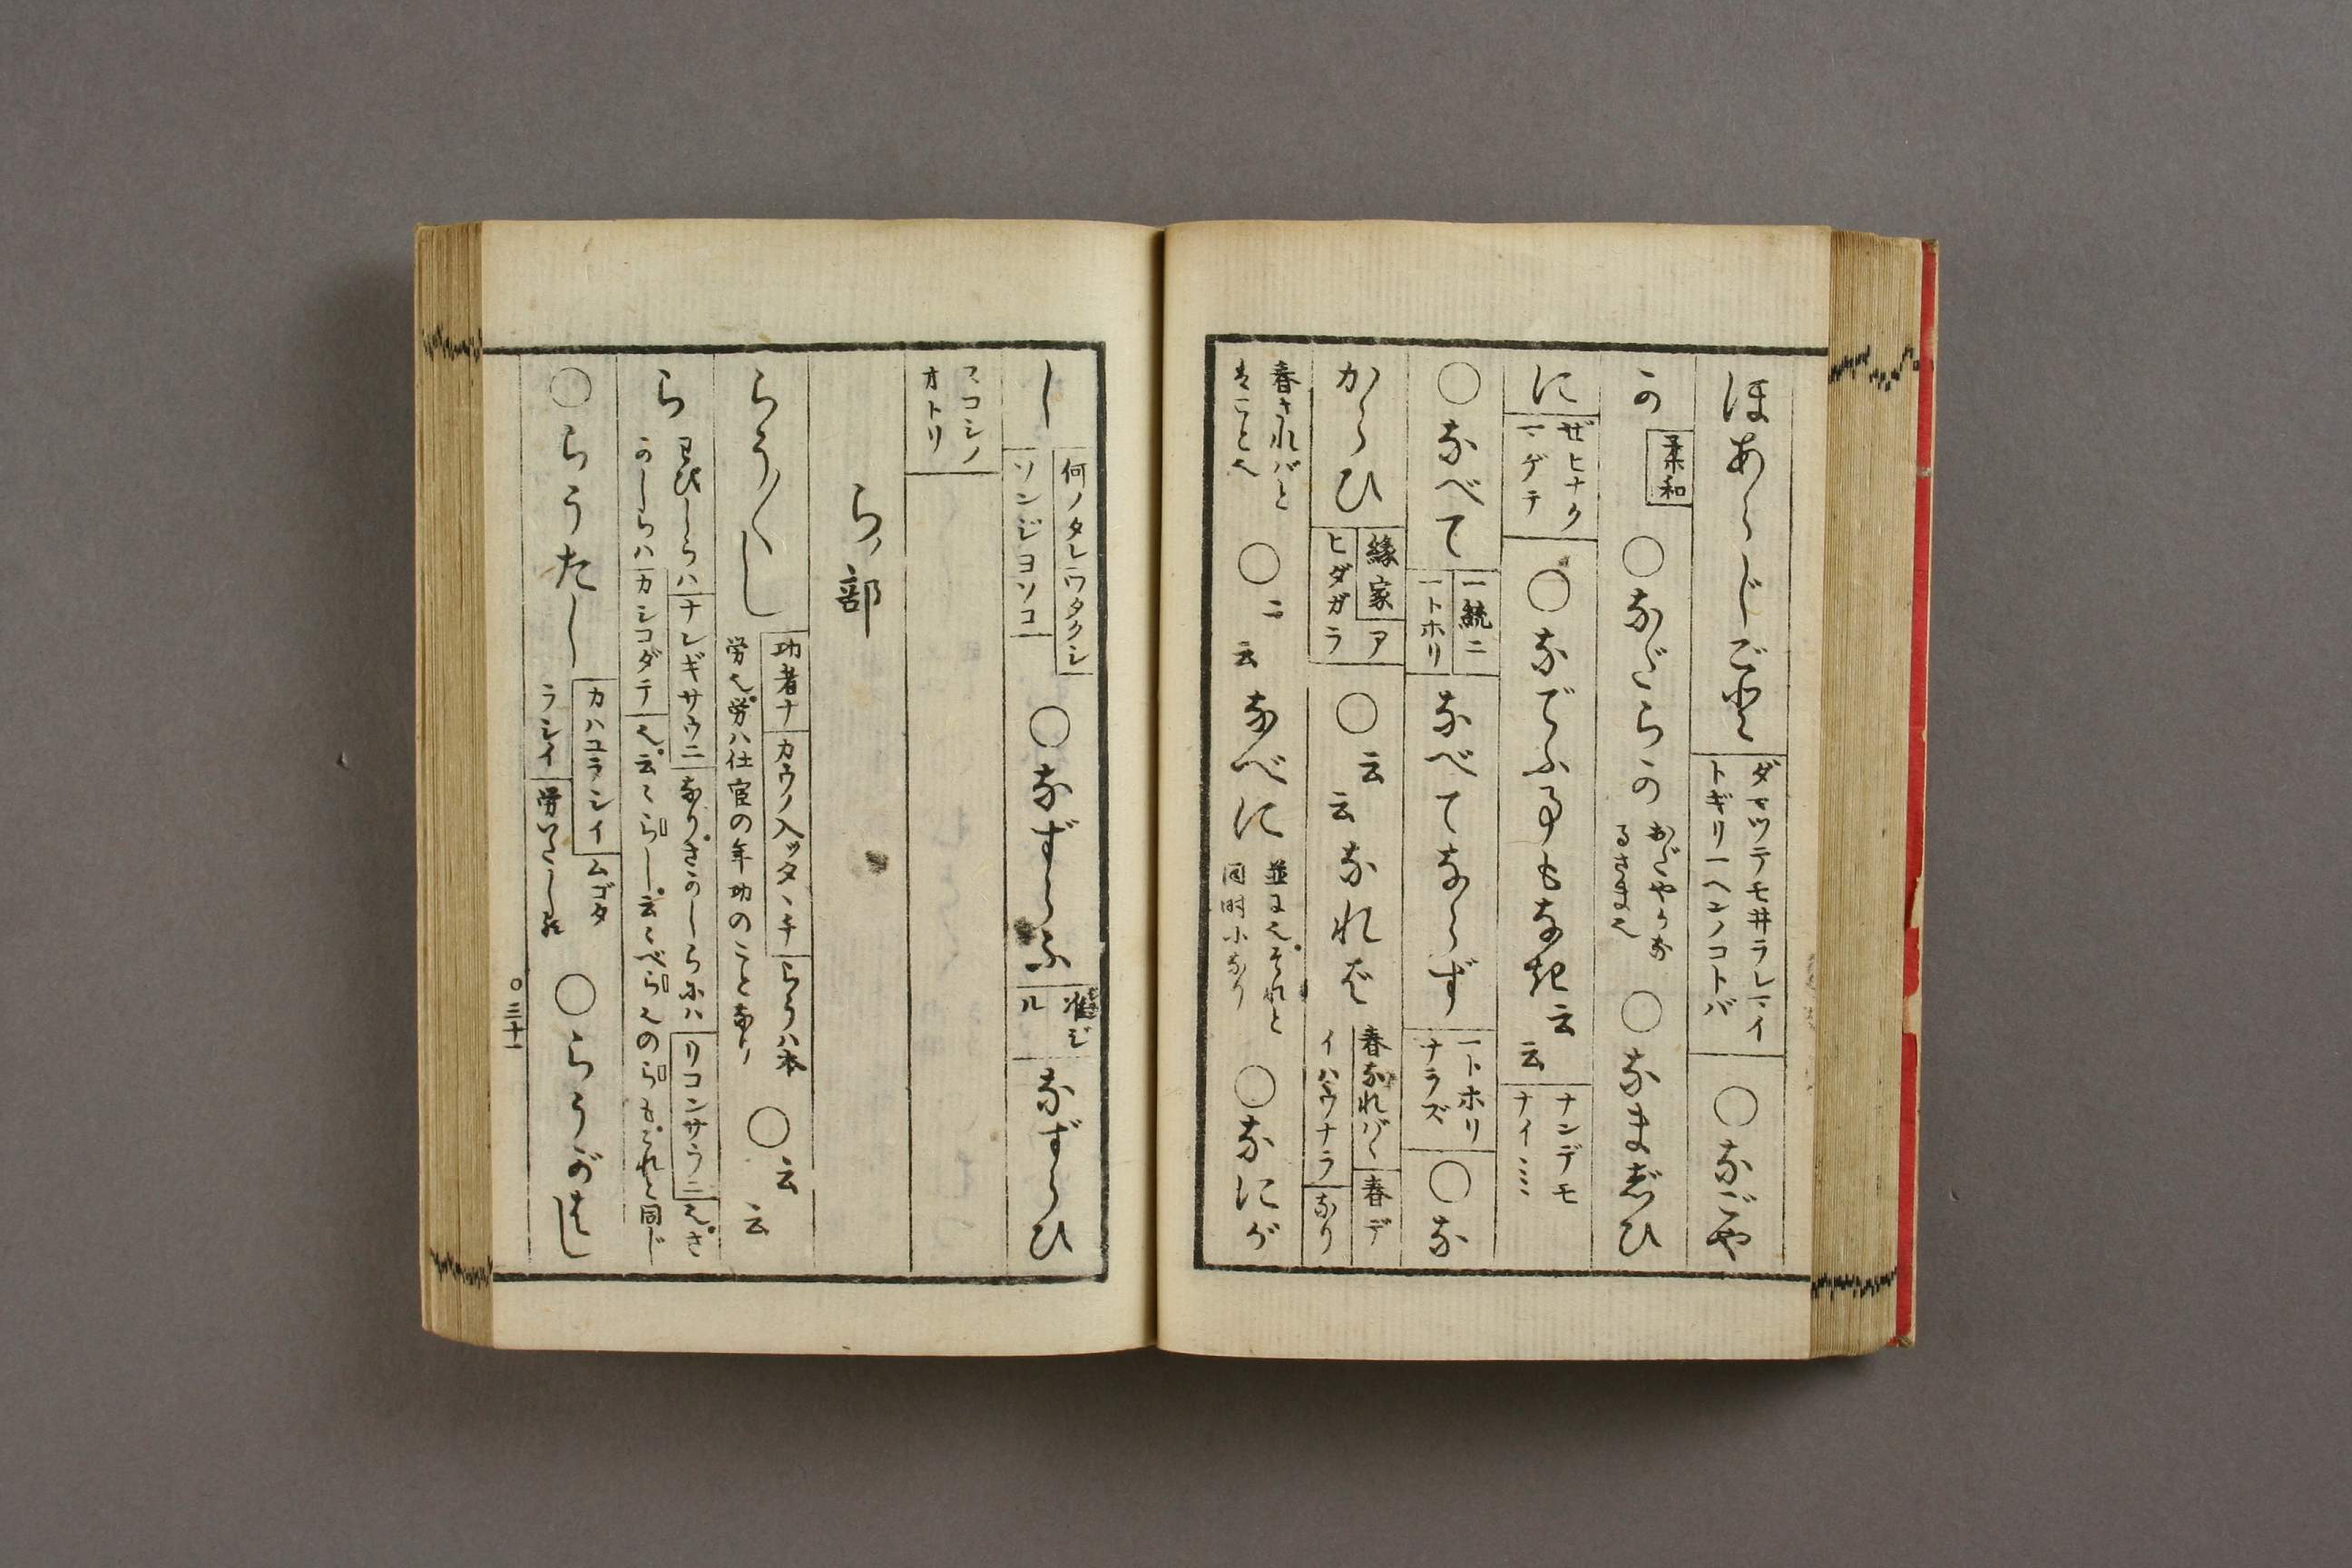 ほあらじごと
ダマツテモ井ラレマイ
トギリーヘンノコトバ
○なごや
か
柔和
○なだらか
おだやかな
るさま也
○なまじひ
に
ゼヒナク
マゲテ
○なでふ事もなき
云云
ナンデモ
ナイミミ
○なべて
一統ニ
一トホリ
なべてならず
一トホリ
ナラズ
○な
からひ
縁家ア
ヒダガラ
○云云なれば
春なればハ春デ
イハウナラなり
春されバと
はこと也
○ニ云云なべに
並に也それと
同時になり
○なにが
し
何ノタレワタクシ
ソンジヨソコ
○なずらふ
准ジ
ル
なずらひ
スコシノ
オトリ
らノ部
らう/\し
功者ナカウノ入ッタヽチらうハ本
労也労ハ仕官の年功のことなり
○云云
ら
わびしらハナレギサウニなりさかしらにハリコンサウニ也さ
かしらハカシコダテ也云々らし云々べら也のらもこれと同じ
○らうたし
カハユラシイムゴタ
ラシイ労いたし
○らうがはし
○三十一